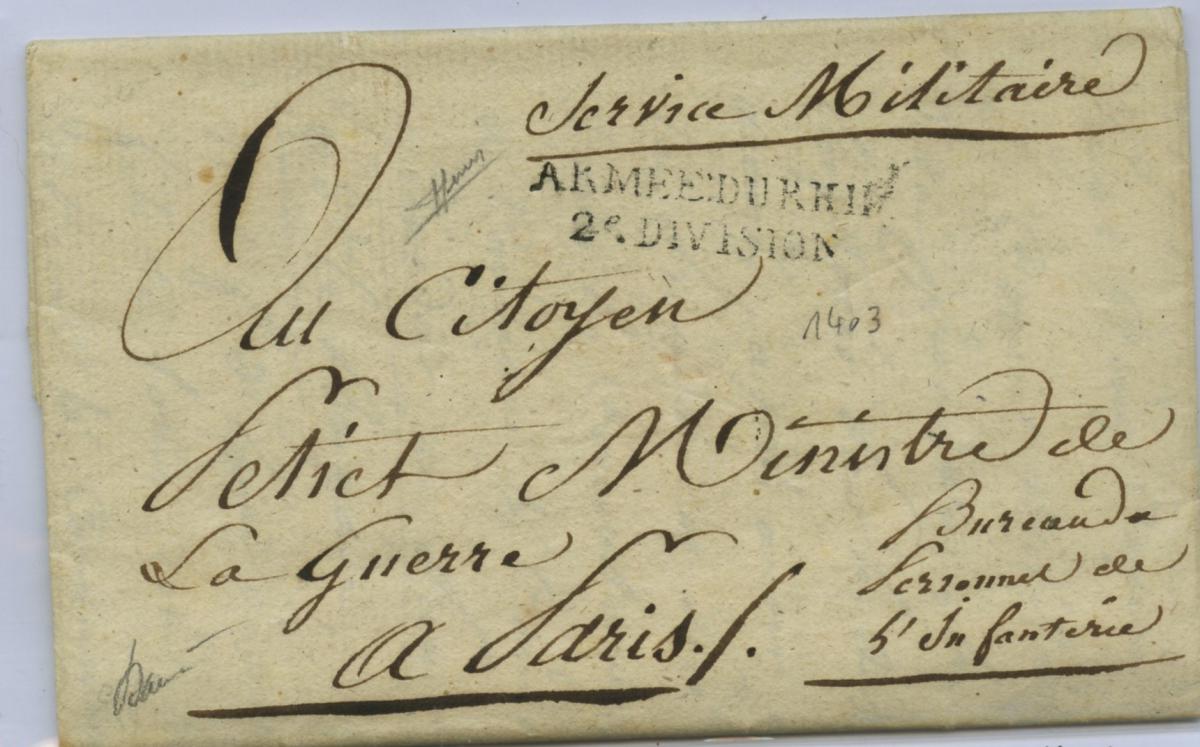 Service Militaire
ARMEE.DU RHIN
2e. DIVISION
Au Citoyen
1403
Petiet Ministre de
La Guerre
Bureau du
Personnel de
l'Infanterie
a Paris./.